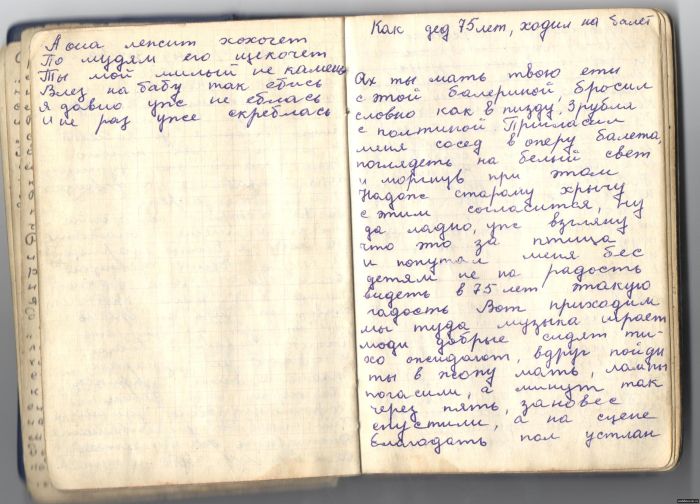 А она лепсит хохочет
По мудям его щекочет
Ты мой милый не камень
Влез на бабу так ебись
я давно уже не еблась
и не раз уже скреблась
Как дед 75 лет, ходил на балет
Ах ты мать твою ети
с этой балериной бросил
словно как в пизду, 3 рубля
с полтиной. Пригласил
меня сосед в оперу балета,
поглядеть на белый свет
и моргнув при этом
Надо же старому хрычу
с этим согласится, ну
да ладно, уже взгляну
что это за птица
и попутал меня бес
детям не на радость
видеть в 75 лет этакую
гадость Вот приходим
мы туда музыка играет
люди добрые сидят ти-
хо ожидают, вдруг пойди
ты в жопу мать, лампы
погасили, а минут так
через пять, зановес
спустили, а на сцене
благодать пол устлан